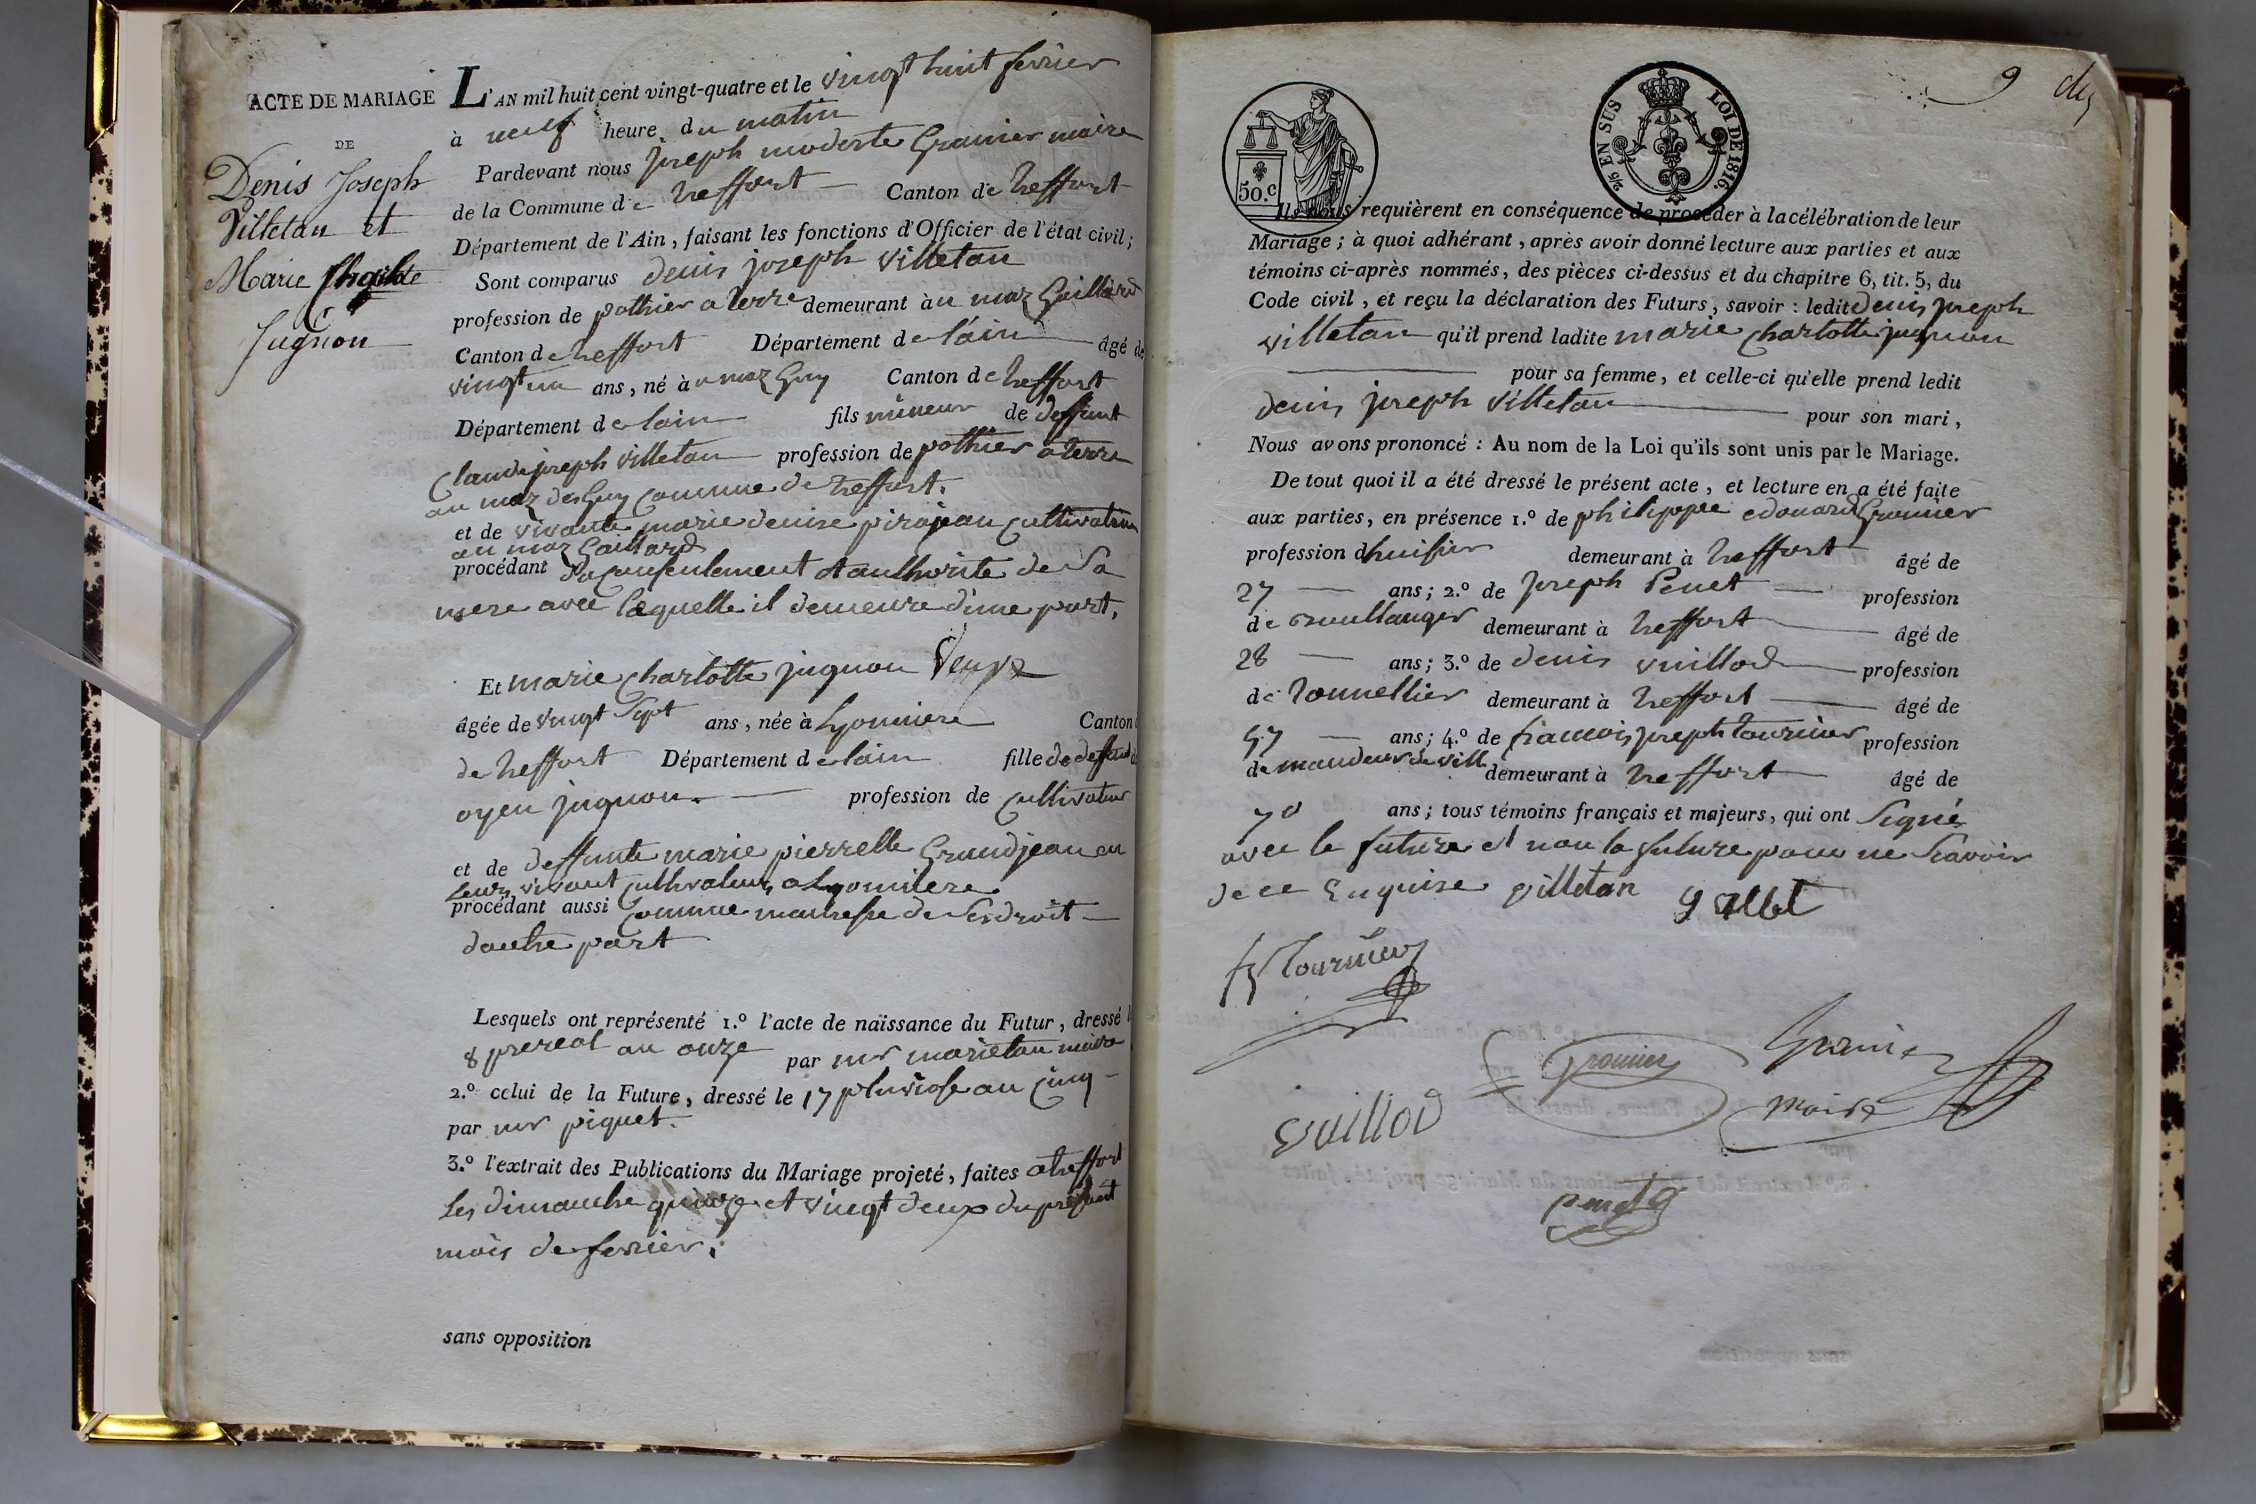 ACTE DE MARIAGE
DE
Denis Joseph
Villetan et
Marie
Jugnon
L'AN mil huit cent vingt-quatre et le vingt huit fevrier
à neuf heure du matin
Pardevant nous joseph modeste Granier maire
de la Commune de treffort Canton de treffort
Département de l'Ain, faisant les fonctions d'Officier de l'état civil;
Sont comparus denis joseph villetan
profession de pothier a terre demeurant à u maz Gaillard
Canton de treffort Département de lain âgé de
vingt un ans, né à u maz Guy Canton de treffort
Département de lain fils mineur de deffunt
Claude joseph villetan profession de pothier a terre
au maz des Guy Commune de treffort.
et de vivante marie denise pirajean Cultivatrice
au maz Gaillard
procédant du Consentement et authorite de Sa
mere avec laquelle il demeure d'une part,
Et marie Charlotte jugnon
âgée de vingt Sept ans, née à Lyonniere Canton
de treffort Département de lain fille de deffunt
oyen jugnon. profession de Cultivateur
et de deffunte marie pierrette Grandjean en
leurs vivant Cultivateurs a Lyonniere
procédant aussi Comme maitresse de Ses droit
dautre part
Lesquels ont représenté 1.º l'acte de naissance du Futur, dressé l
8 prereal an onze par mr marietan maire
2.º celui de la Future, dressé le 17 pluviose an Cinq
par mr piquet.
3.º l'extrait des Publications du Mariage projeté, faites a treffort
Les dimanche quinze et vingt deux du présent
mois de fevrier;
sans opposition
9
50.C
2/5 EN SUS LOI DE 1816.
Ils nous requièrent en conséquence de procéder à la célébration de leur
Mariage; à quoi adhérant, après avoir donné lecture aux parties et aux
témoins ci-après nommés, des pièces ci-dessus et du chapitre 6, tit. 5, du
Code civil, et reçu la déclaration des Futurs, savoir : ledit denis joseph
villetan qu'il prend ladite marie Charlotte jugnon
pour sa femme, et celle-ci qu'elle prend ledit
denis joseph villetan pour son mari,
Nous avons prononcé : Au nom de la Loi qu'ils sont unis par le Mariage.
De tout quoi il a été dressé le présent acte, et lecture en a été faite
aux parties, en présence 1.º de philippe edouard Granier
profession d'huisier demeurant à treffort âgé de
27 ans; 2.º de joseph Penet profession
de Boullanger demeurant à treffort âgé de
28 ans; 3.º de denis vuillod profession
de tonnellier demeurant à treffort âgé de
57 ans; 4.º de francois joseph tournier profession
de mandeur de vill demeurant à treffort âgé de
70 ans; tous témoins français et majeurs, qui ont Signé
avec le future et non la future pour ne Scavoir
de ce Enquise villetan
Tournier
Granier
Granier
maire
Vuillod
penet